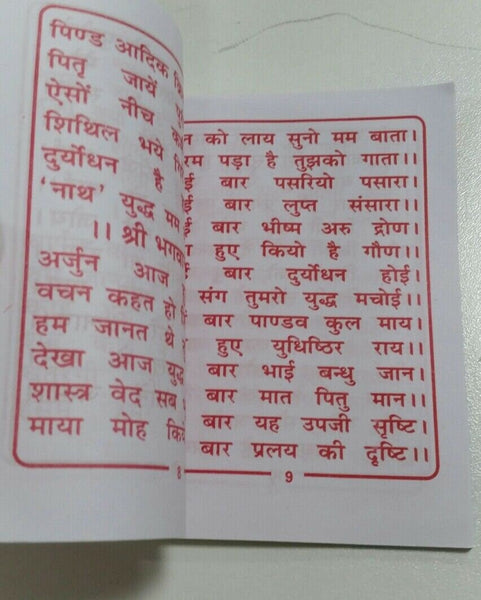 पिण्ड आदिक
पितृ जायें
ऐसों नीच
शिथिल भये
दुर्योधन है
'नाथ' युद्ध मम
।। श्री
अर्जुन आज
वचन कहत हो
हम जानत थे
देखा आज युद्ध
शास्त्र वेद सब
माया मोह
8
को लाय सुनो मम बाता।
पड़ा है तुझको गाता।।
बार पसरियो पसारा।
बार लुप्त संसारा।।
बार भीष्म अरु द्रोण।
हुए कियो है गौण।।
बार दुर्योधन होई।
संग तुमरो युद्ध मचोई।।
बार पाण्डव कुल माय।
हुए युधिष्ठिर राय।।
बार भाई बन्धु जान।
बार मात पितु मान।।
बार यह उपजी सृष्टि।
बार प्रलय की दृष्टि।।
9